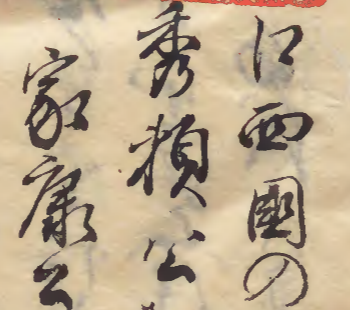 に西國の
秀頼公
家康公